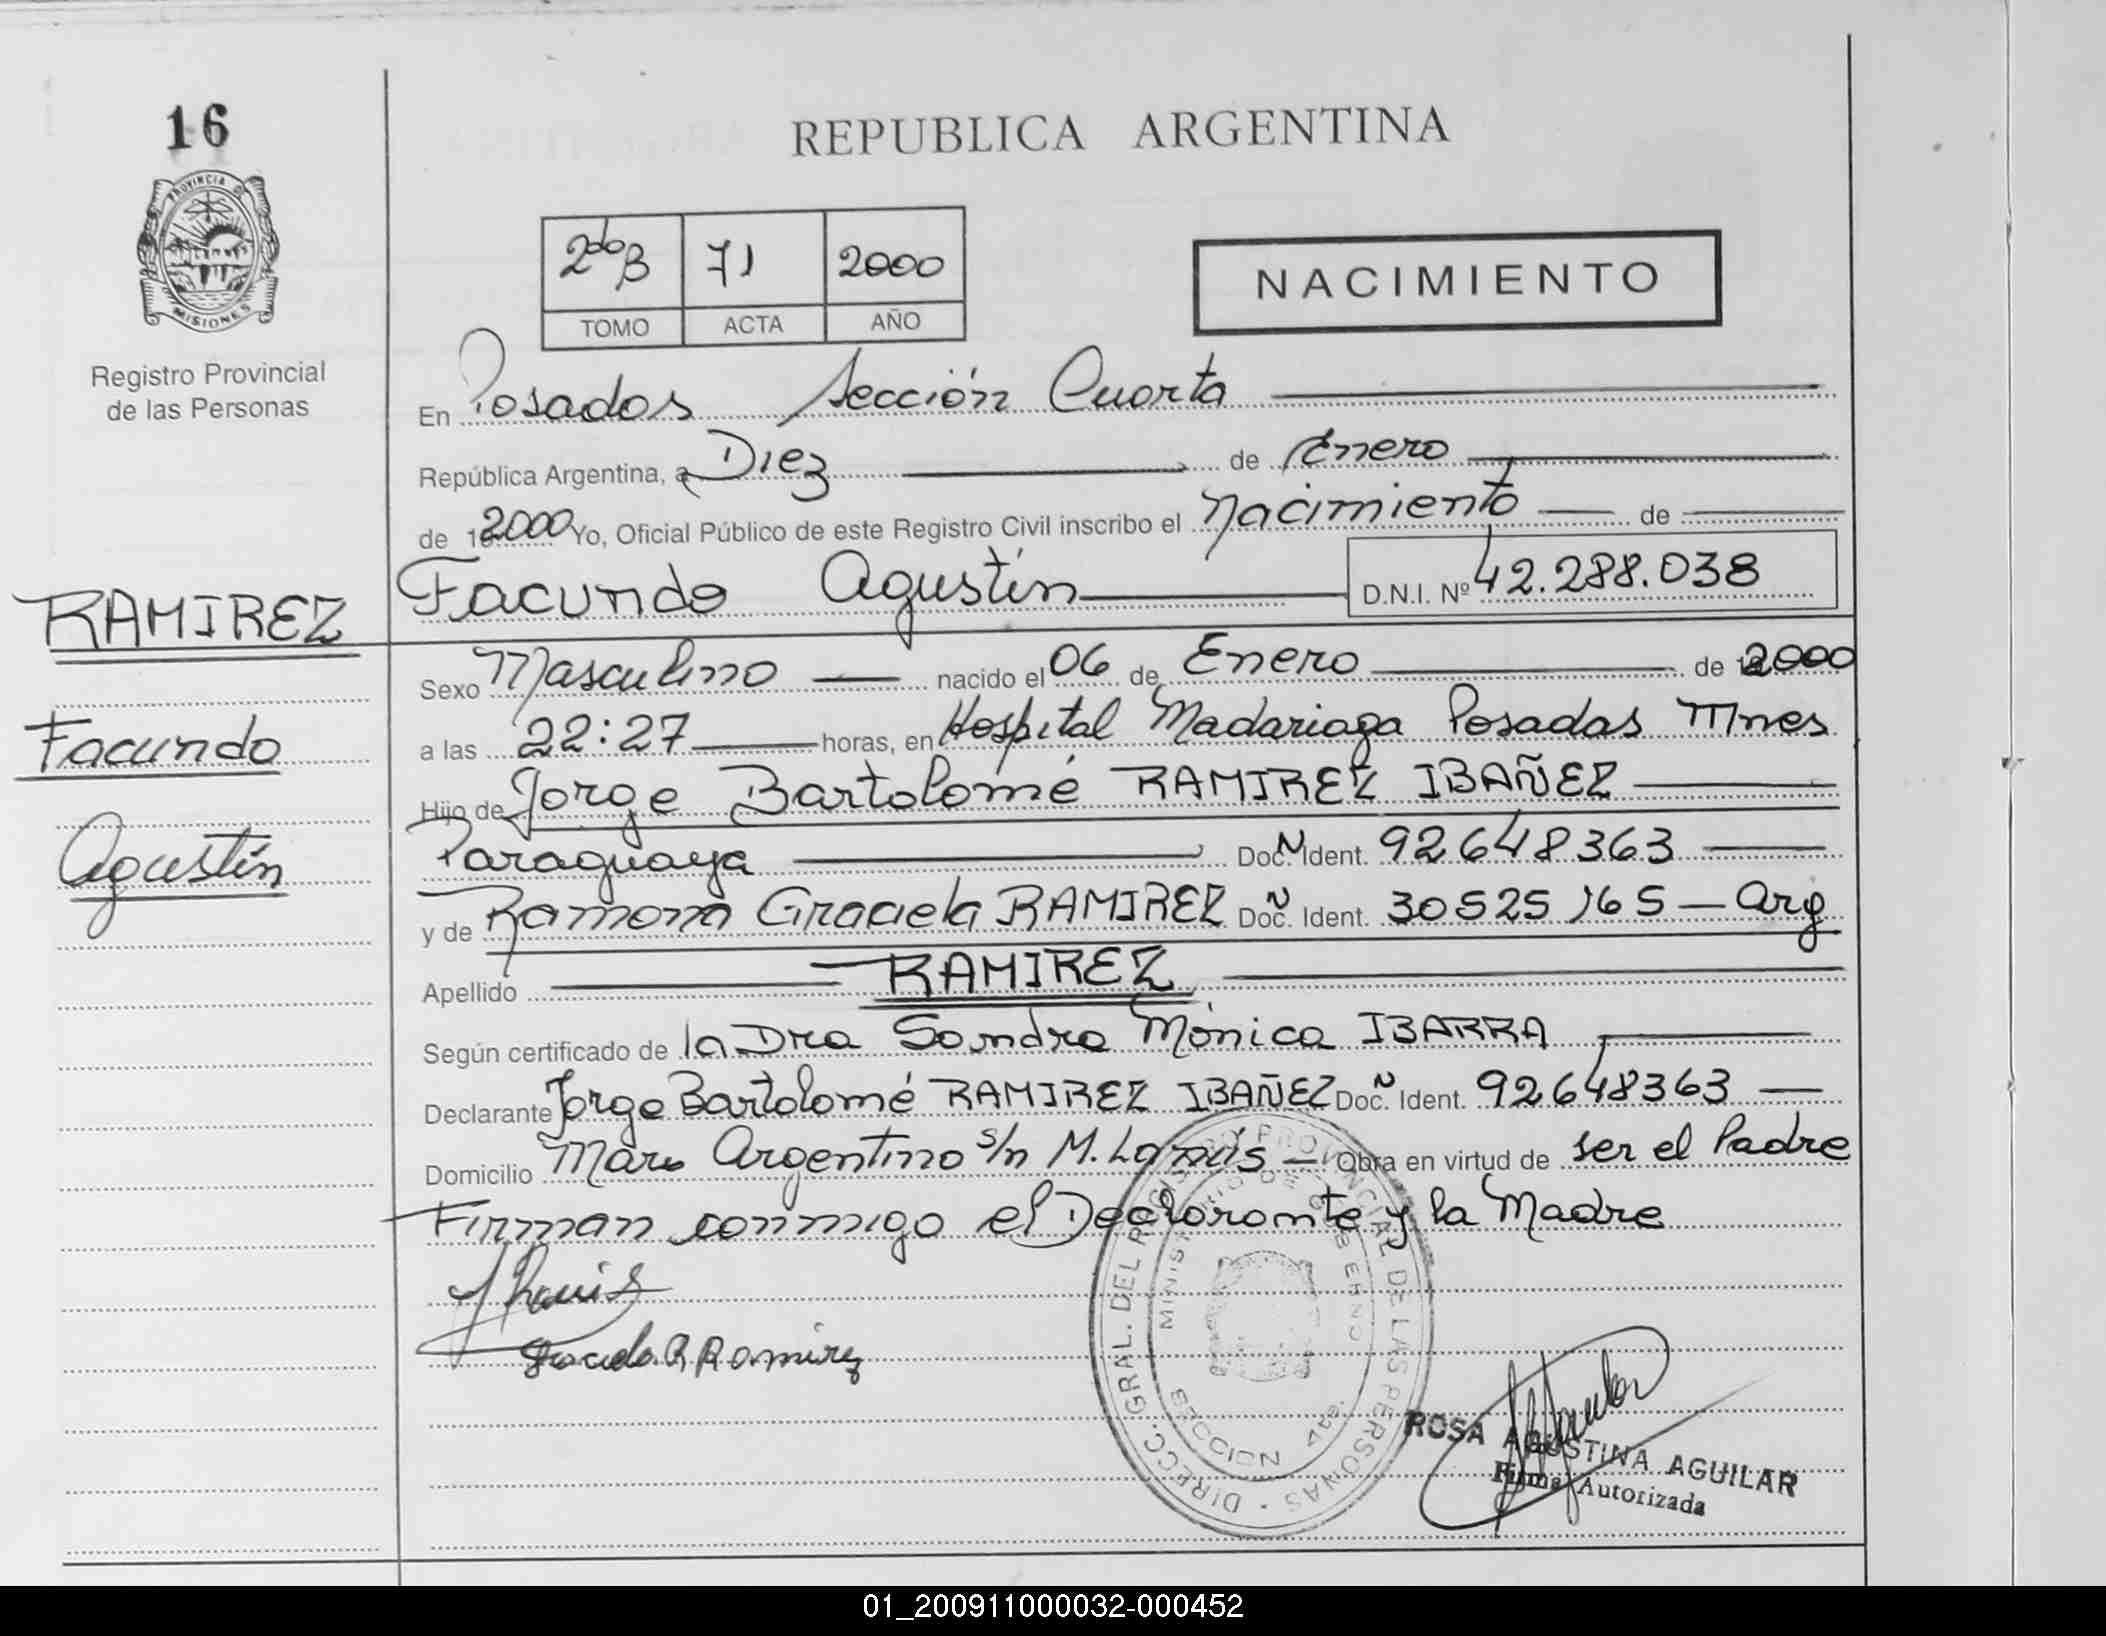 16
REPUBLICA ARGENTINA
PROVINCIA DE
MISIONES
Registro Provincial
de las Personas
2do B 71 2000
TOMO ACTA AÑO
NACIMIENTO
En Posadas Sección Cuarta
República Argentina, a Diez de Enero
de 2000 Yo, Oficial Público de este Registro Civil inscribo el Nacimiento de
Facundo Agustín D.N.I. Nº 42.288.038
RAMIREZ
Facundo
Agustín
Sexo Masculino nacido el 06 de Enero de 2000
a las 22:27 horas, en Hospital Madariaga Posadas Mnes
Hijo de Jorge Bartolomé RAMIREZ IBAÑEZ
Paraguaya Doc. Ident. 92648363
y de Ramona Graciela RAMIREZ Doc. Ident. 30525165 — Arg
Apellido RAMIREZ
Según certificado de la Dra Sandra Mónica IBARRA
Declarante Jorge Bartolomé RAMIREZ IBAÑEZ Doc. Ident. 92648363
Domicilio Mar Argentino s/n M. Lanús — Obra en virtud de ser el Padre
Firman conmigo el Declarante y la Madre
Graciela R Ramirez
DIRECC. GRAL. DEL REGISTRO PROVINCIAL DE LAS PERSONAS
MINISTERIO DE GOBIERNO
ROSA AGUSTINA AGUILAR
Firma Autorizada
01_200911000032-000452